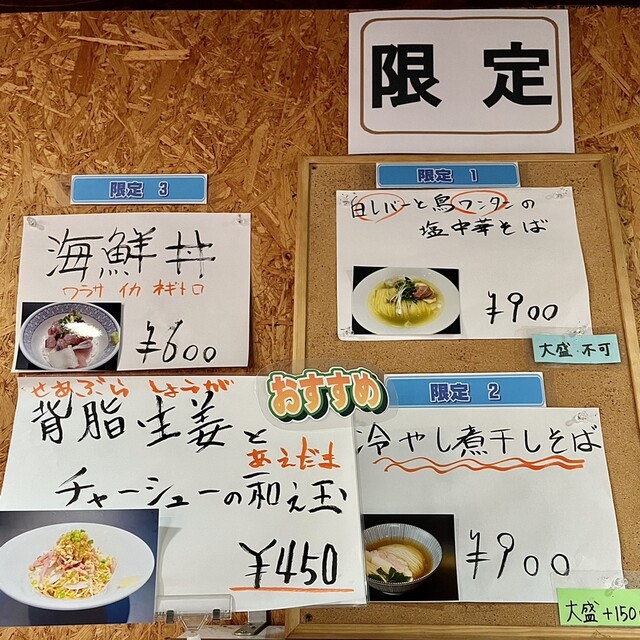 限定
限定 1
白レバーと鳥ワンタンの
塩中華そば
¥900
大盛 不可
限定 3
海鮮丼
ワラサ イカ ネギトロ
¥600
おすすめ
せあぶら しょうが
背脂生姜と
あえだま
チャーシューの和え玉
¥450
限定 2
冷やし煮干しそば
¥900
大盛+150